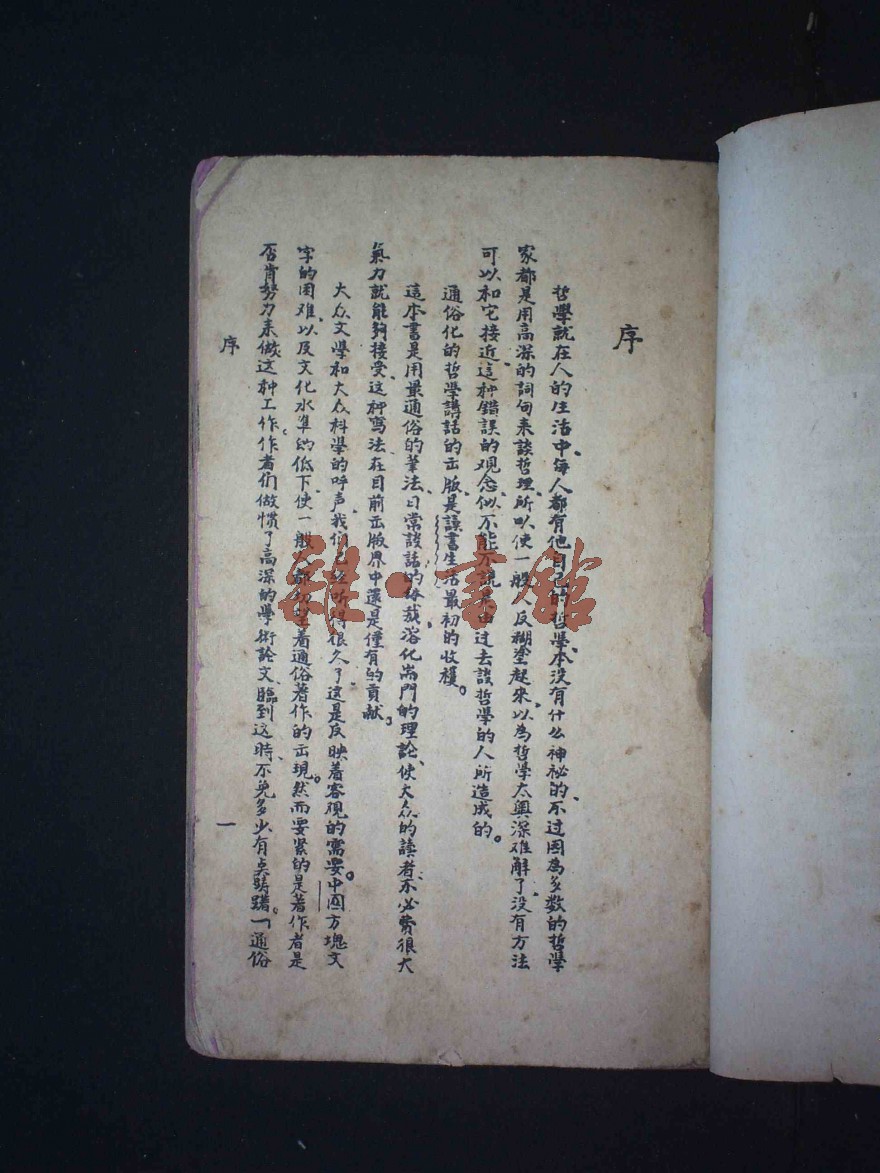 序
哲學就在人的生活中、每人都有他自己的哲學、本没有什么神祕的、不过因為多数的哲學
家都是用高深的詞句来談哲理、所以使一般人反糊塗起来、以為哲學太奥深难解了、没有方法
可以和它接近、這种錯誤的观念、似不能不說是由过去談哲學的人所造成的。
通俗化的哲學講話的出版、是讀書生活最初的收穫。
這本書是用最通俗的筆法、日常談話的体裁、溶化耑門的理論、使大众的讀者不必費很大
氣力就能夠接受、这种寫法、在目前出版界中還是僅有的貢献。
大众文學和大众科學的呼声、我们已经听得很久了、这是反映着客观的需要。中国方塊文
字的困难、以及文化水準的低下、使一般人都切望着通俗著作的出現。然而要紧的是著作者是
否肯努力来做这种工作。作者们做慣了高深的學術論文、臨到这時、不免多少有点踌躇。「通俗
序
一
雜·書館